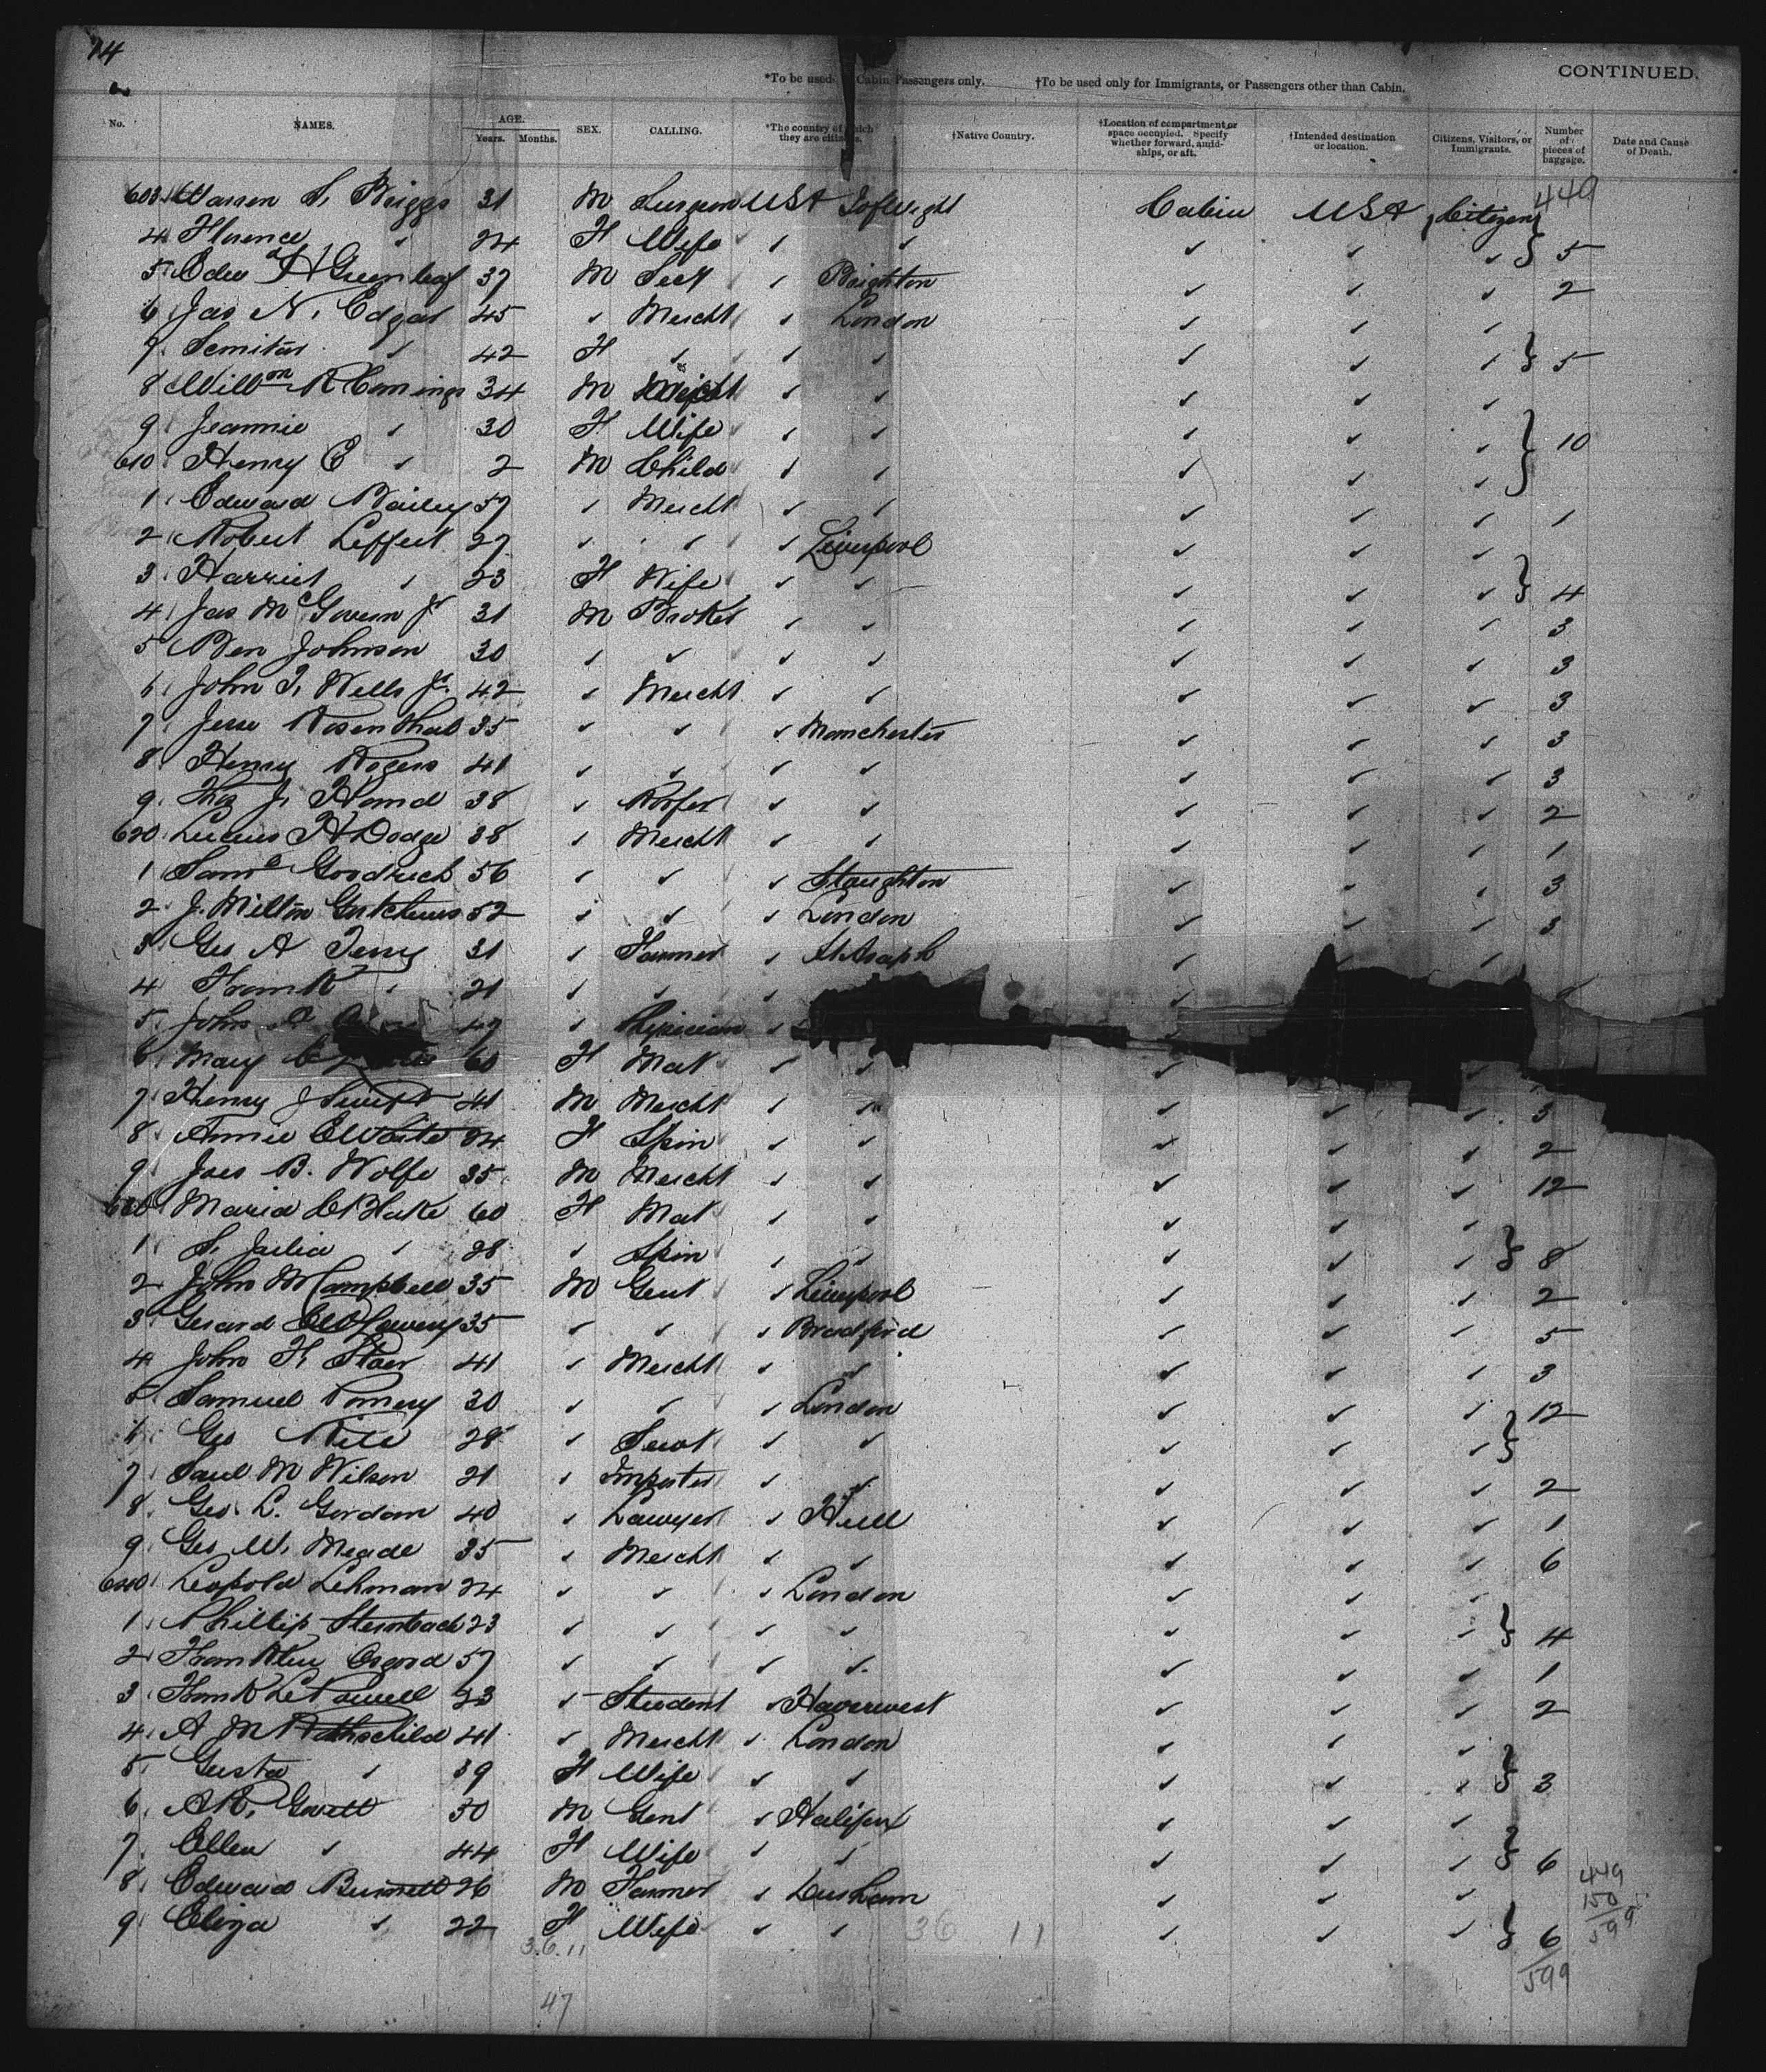 14
CONTINUED.
*To be used Cabin Passengers only. †To be used only for Immigrants, or Passengers other than Cabin.
No. NAMES. AGE. Years. Months. SEX. CALLING. *The country of which they are citizens. †Native Country. †Location of compartment or space occupied. Specify whether forward, amidships, or aft. †Intended destination or location. Citizens, Visitors, or Immigrants. Number of pieces of baggage. Date and Cause of Death.
449
603 Warren S. Briggs 31 M Surgeon USA Cabin USA Citizen
4 Florence " 24 F Wife " " " " " } 5
5 Edwd H Greenleaf 37 M " Brighton " " " 2
6 Jas N. Edgar 45 " Mercht " London " " "
7 " 42 F " " " " " " } 5
8 R Comings 34 M " " " " "
9 Jeannie " 30 F Wife " " " " "
610 Henry E " 2 M Child " " " " " } 10
1 Edward Bailey 57 " Mercht " " " " " 1
2 Robert Leffert 27 " " " Liverpool " " "
3 Harriet " 23 F Wife " " " " " } 4
4 Jas McGovern Jr 31 M Broker " " " " " 3
5 Ben Johnson 30 " " " " " " " 3
6 John I. Wells Jr. 42 " Mercht " " " " " 3
7 Jesse Rosenthal 35 " " " Manchester " " " 3
8 Henry Rogers 41 " " " " " " " 3
9 Thos J. 38 " Roofer " " " " " 2
620 Lucius H Dodge 38 " Mercht " " " " " 1
1 Saml Goodrich 56 " " " Staughton " " " 3
2 J. Milton 52 " " " London " " " 3
3 Geo A Terry 31 " Farmer " St Asaph " " "
4 Frank " 21 " " " "
5 John 47 " Physician "
6 Mary 60 F Mat " " " "
7 Henry J Swift 41 M Mercht " " " " " 3
8 Annie E White 24 F Spin " " " " " 2
9 Jas B. Wolfe 35 M Mercht " " " " " 12
630 Maria C Blake 60 F Mat " " " " "
1 S. Julia " 28 " Spin " " " " " } 8
2 John M Campbell 35 M Gent " Liverpool " " " 2
3 Gerard 35 " " " Bradford " " " 5
4 John H. Starr 41 " Mercht " " " " " 3
5 Samuel Pomery 30 " " " London " " " 12
6 Geo 28 " Servt " " " " " }
7 Saul M Wilson 21 " Importer " " " " " 2
8 Geo. L. Gordon 40 " Lawyer " Hull " " " 1
9 Geo W. Meade 35 " Mercht " " " " " 6
640 Leopold Lehman 24 " " " London " " "
1 Phillip Steinbach 23 " " " " " " " } 4
2 Franklin Osgood 57 " " " " " " " 1
3 Frank 23 " Student " Haverwest " " " 2
4 A M Rothschild 41 " Mercht " London " " "
5 Gusta " 39 F Wife " " " " " } 3
6 AR. Govett 50 M Gent " Halifax " " "
7 Ellen " 44 F Wife " " " " " } 6
8 Edward Burnett 26 M Farmer " Durham " " "
9 Eliza " 22 F Wife " " " " " } 6
449
150
599
36 11
3.6.11
599
47